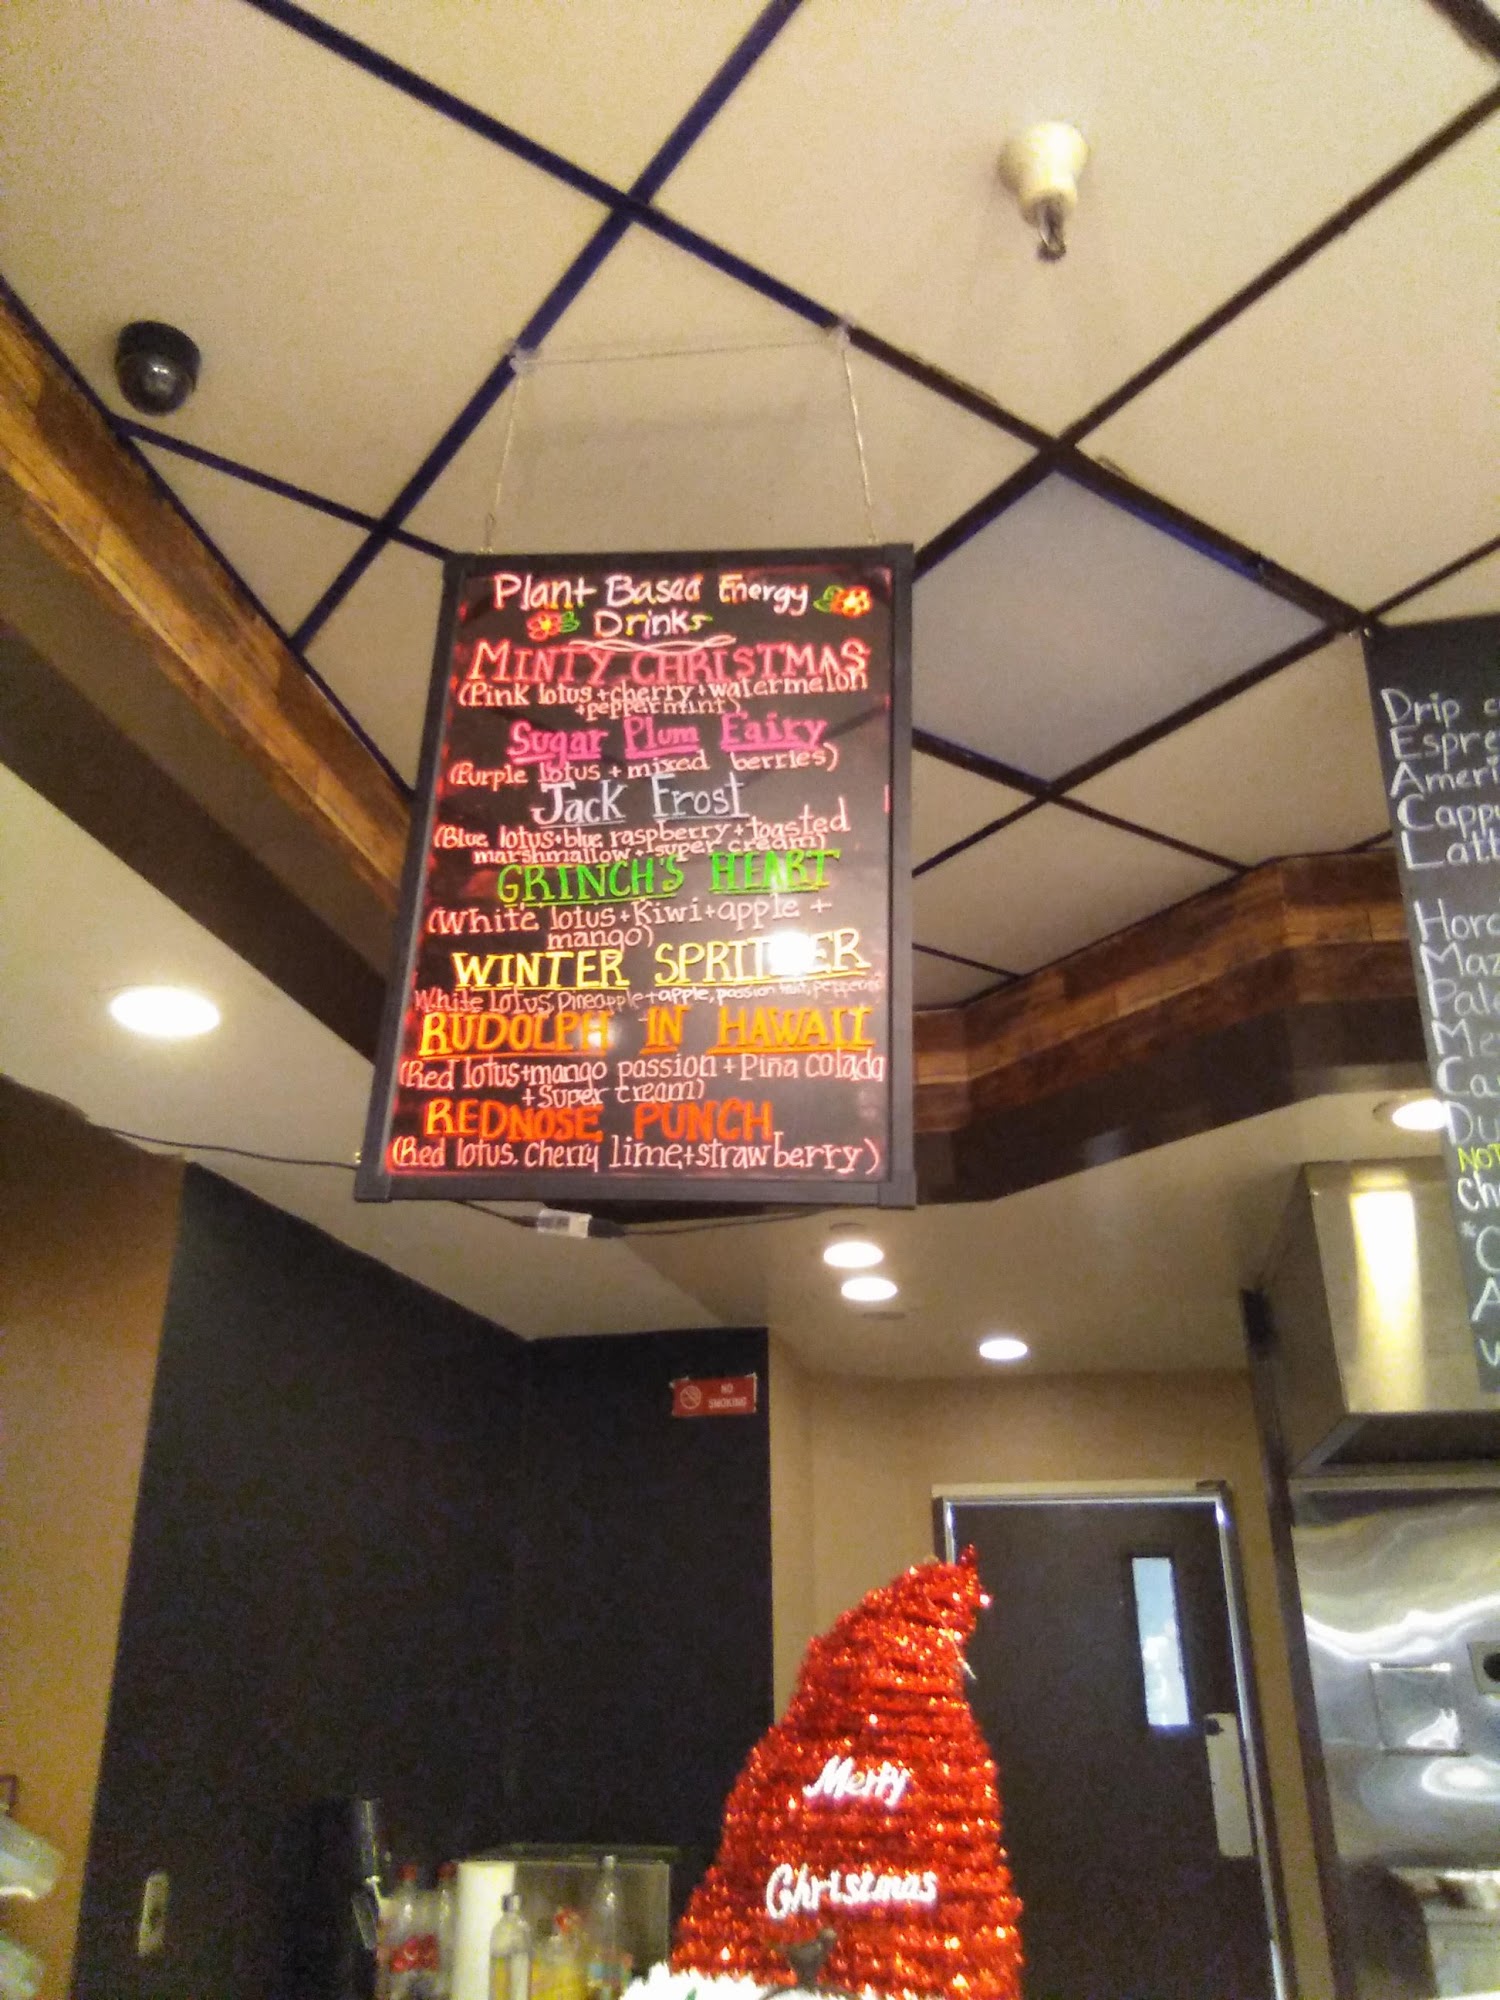 Plant Based Energy
Drinks
MINTY CHRISTMAS
(Pink lotus+cherry+watermelon
+peppermint)
Sugar Plum Fairy
(Purple lotus + mixed berries)
Jack Frost
(Blue lotus+blue raspberry+toasted
marshmallow+super cream)
GRINCH'S HEART
(White lotus+Kiwi+apple +
mango)
WINTER
White lotus, Pineapple+apple, passion fruit,
RUDOLPH IN HAWAII
(Red lotus+mango passion + Piña colada
+Super cream)
REDNOSE PUNCH
(Red lotus, cherry lime+strawberry)
Drip c
Espre
Ameri
Capp
Latt
Horc
Maz
Pale
Me
Ca
Du
NOT
Ch
*C
A
w
NO
SMOKING
Merry
Christmas